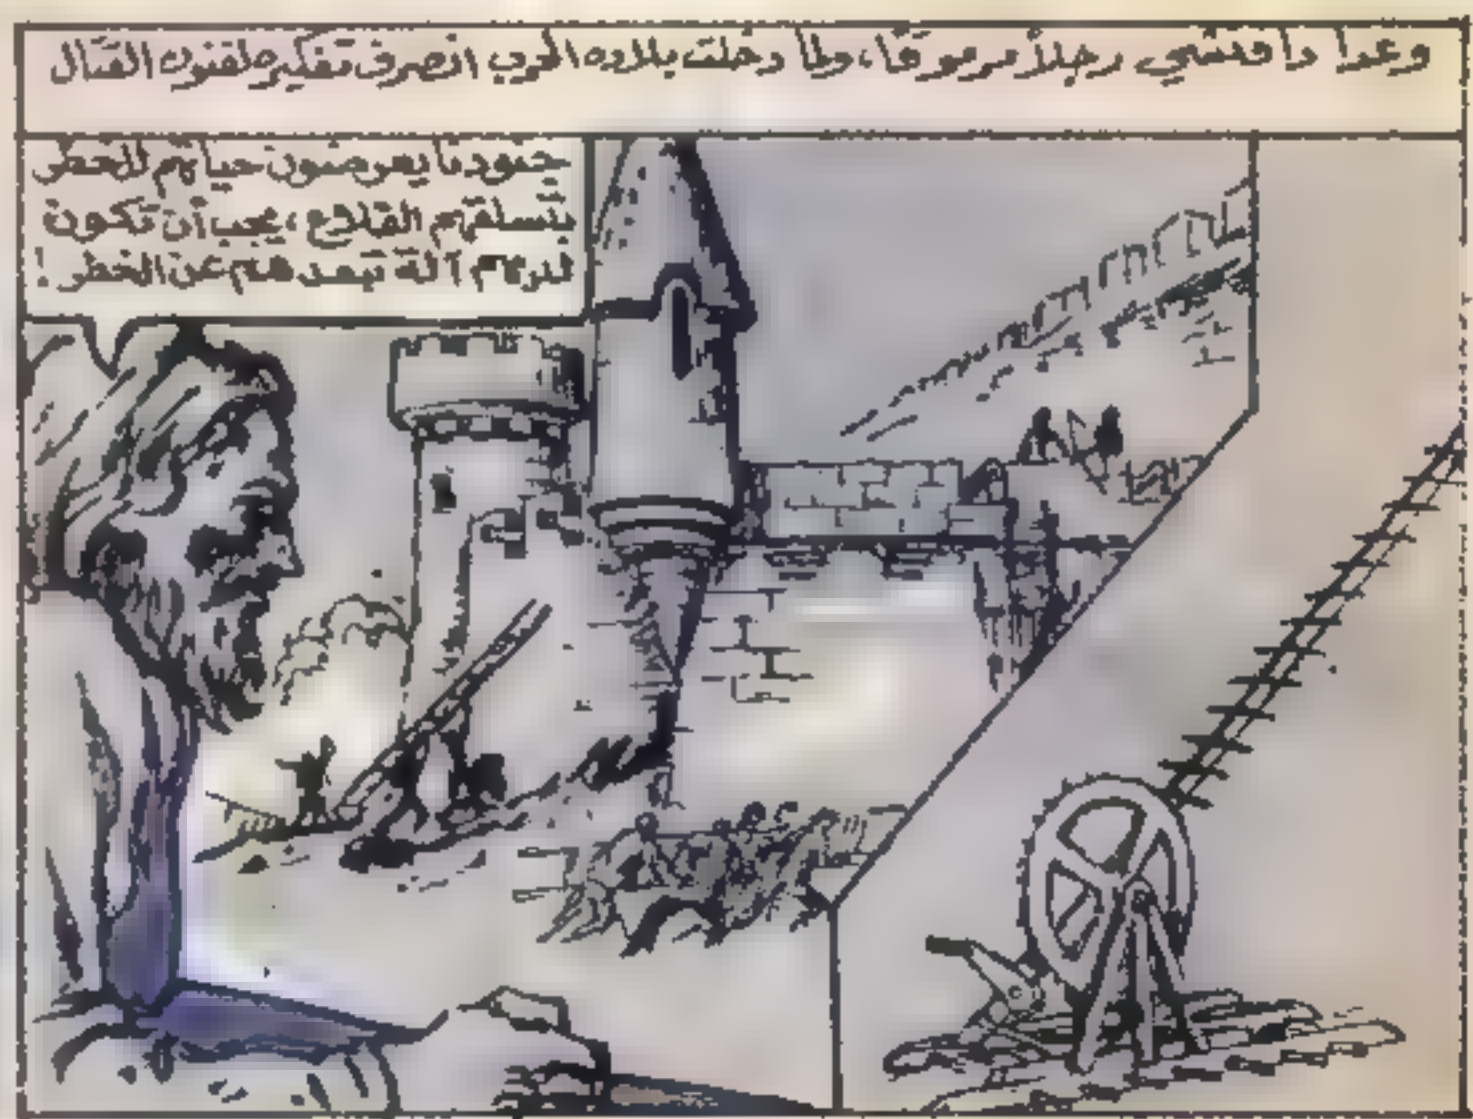 وغدا دافنشي رجلاً مرموقا، ولما دخلت بلاده الحرب انصرف تفكيره لفنون القتال
جنودنا يعرضون حياتهم للخطر
بتسلقهم القلاع، يجب أن تكون
لديهم آلة تبعدهم عن الخطر!